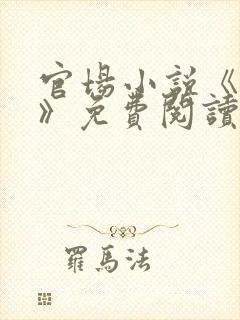 官場小説《
》免費閱讀
羅馬法